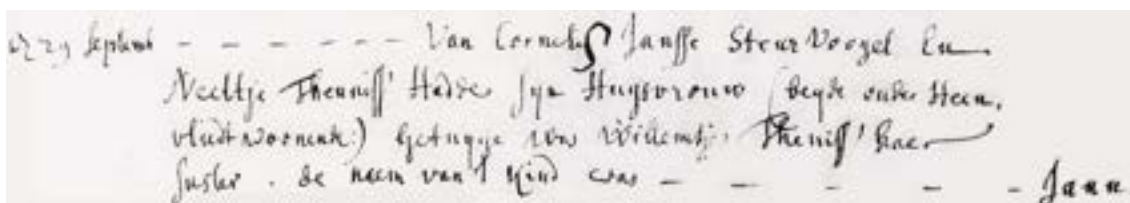 29 Septemb - - - - - - Van Cornelis Jansse Steur Voogel En
Neeltje Theuniss' Hadde syn Huysvrouw (beyde onder Heen,
vliedt woonende) Getuyge was Willemtje Theuniss' haer
suster. de naem van 't kind was - - - - - Jann